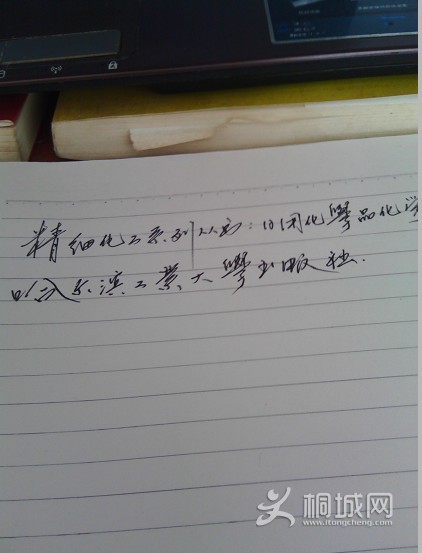 精细化工系列丛书：日用化學品化学
哈尔滨工業大學出版社.
桐城网
www.itongcheng.com